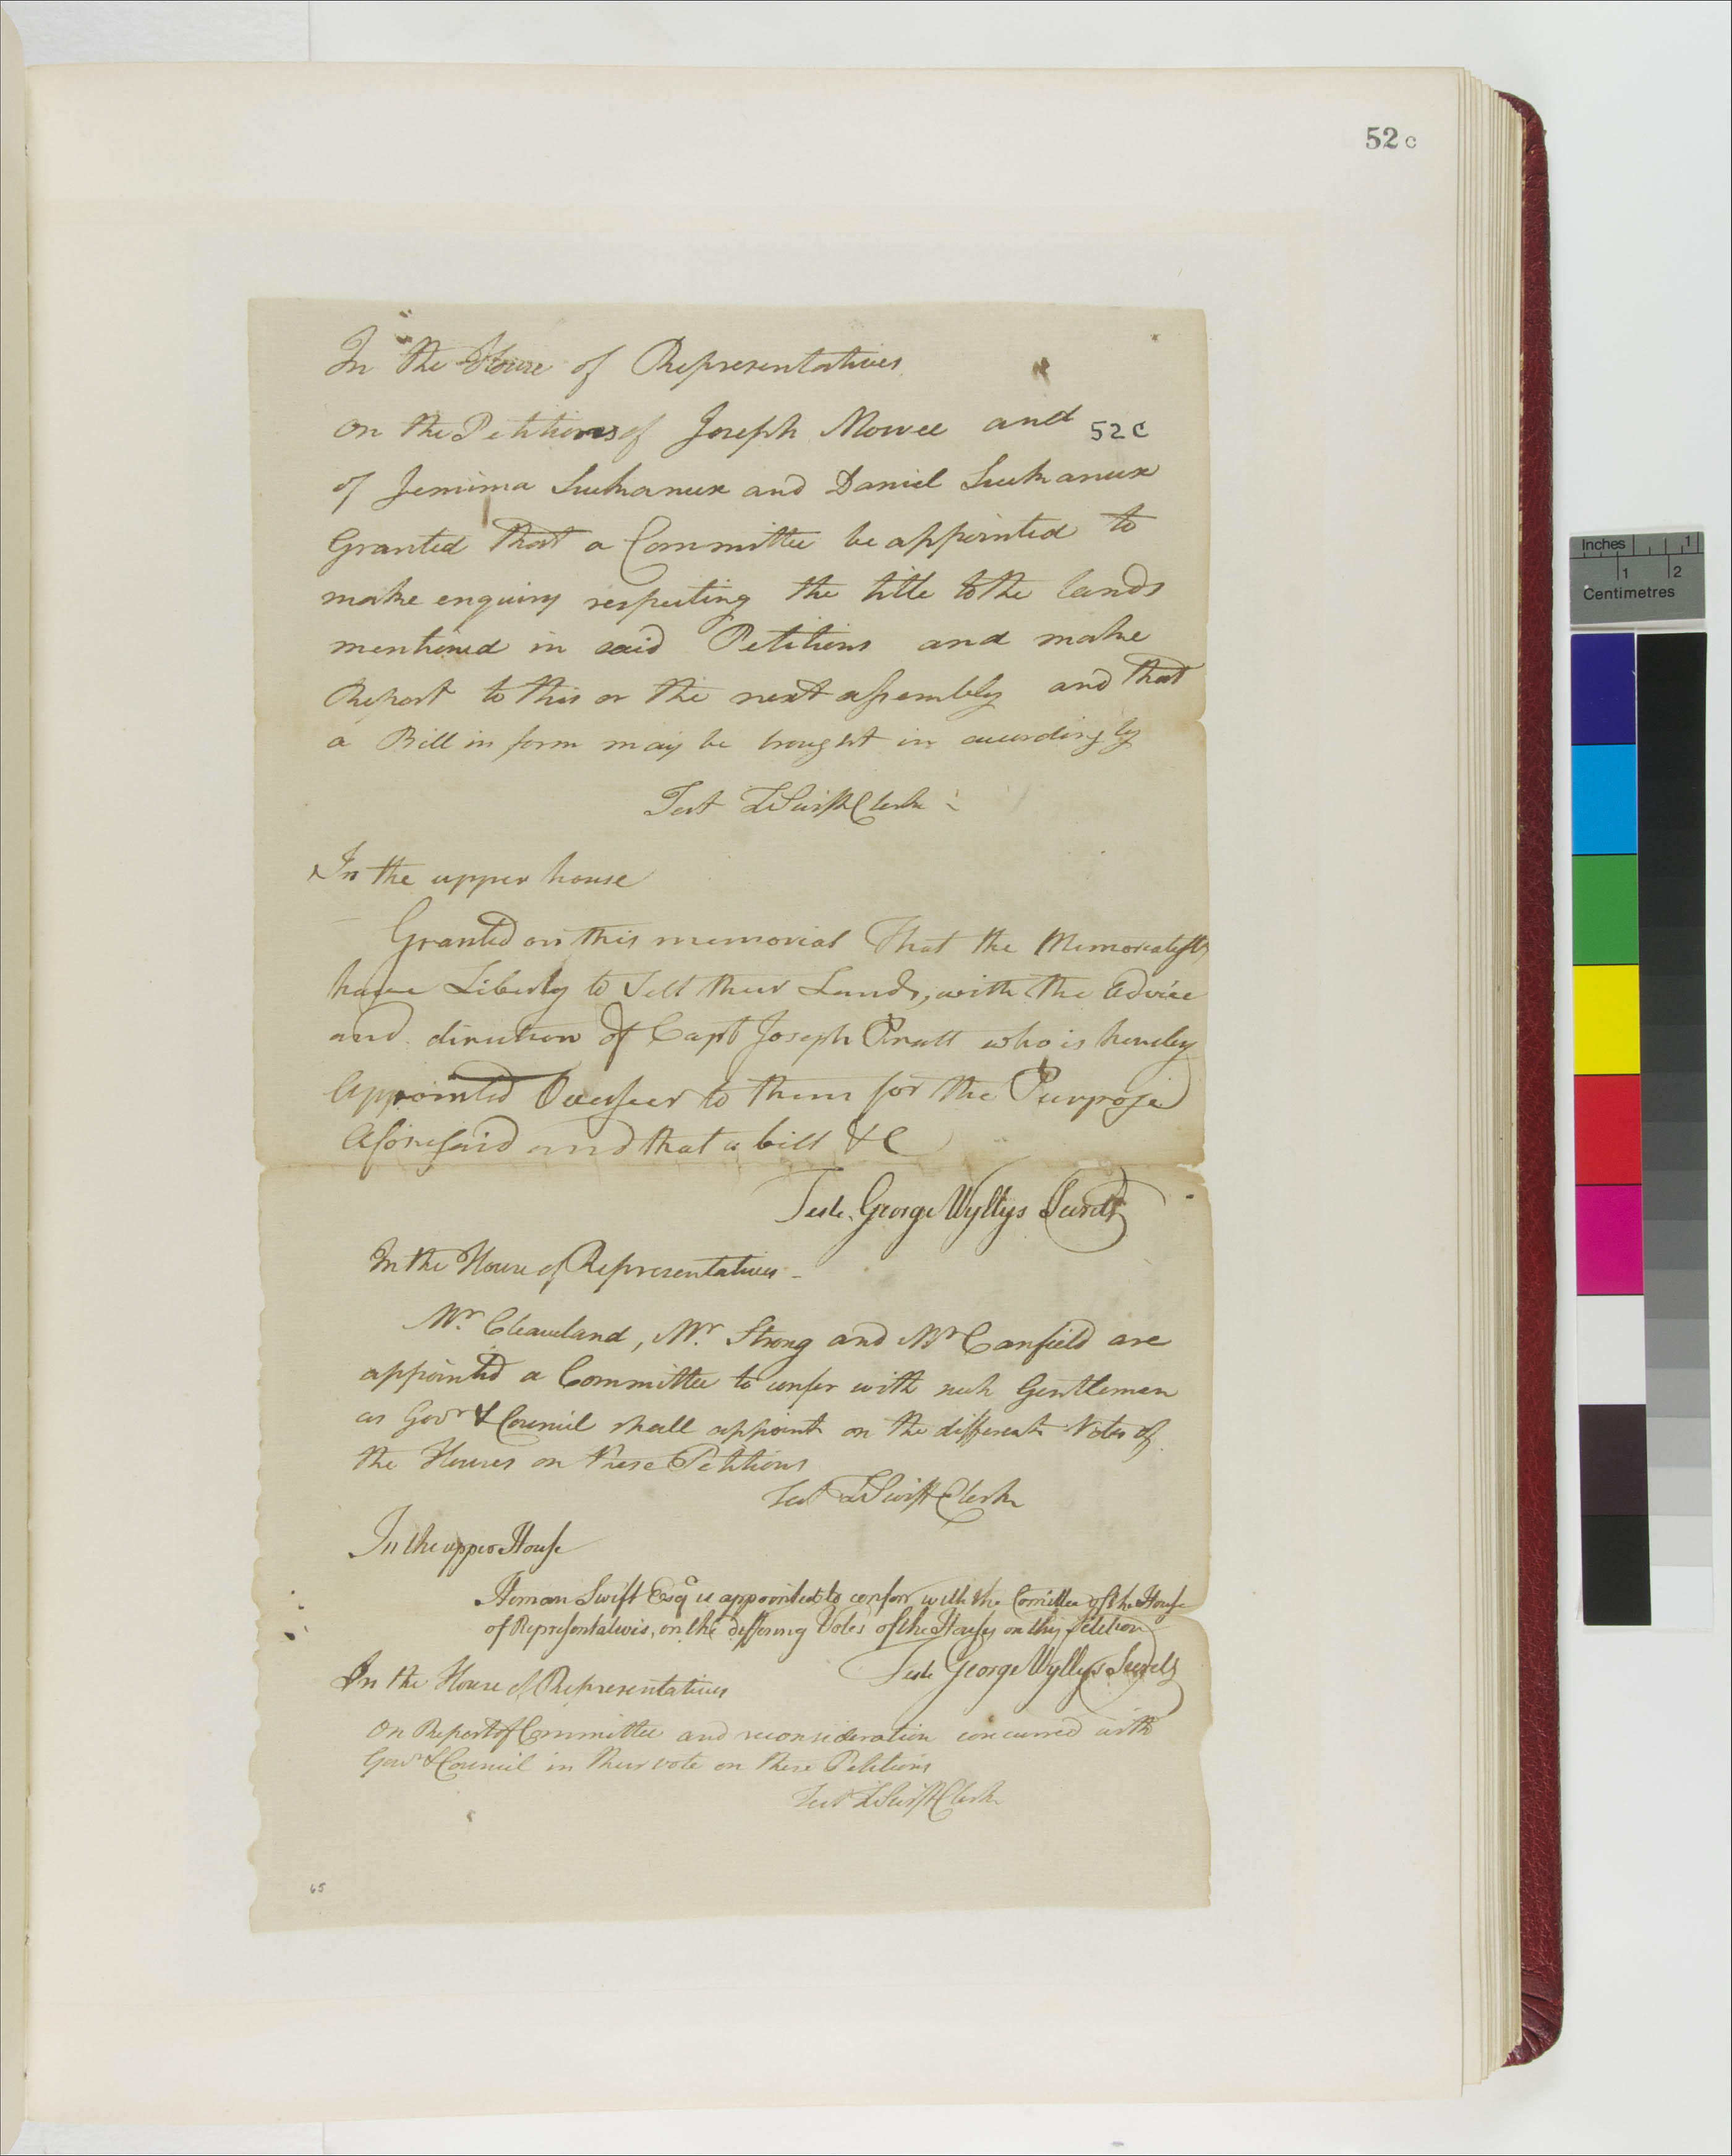 52 c
In the House of Representatives
On the Petitions of Joseph Mowee and
52 C
of Jemima Suckanux and Daniel Suckanux
Granted that a Committee be appointed to
make enquiry respecting the title to the lands
mentioned in said Petitions and make
Report to this or the next assembly and that
a Bill in form may be brought in accordingly
Test Z Swift Clerk
In the upper house
Granted on this memorial That the Memorialists
have Liberty to Sell their Lands, with the Advice
and direction of Capt Joseph Pratt who is hereby
Appointed Overseer to them for the Purpose
Aforesaid and that a bill &C
Teste. George Wyllys Secrety
In the House of Representatives -
Mr. Cleaveland, Mr. Strong and Mr Canfield are
appointed a Committee to confer with such Gentlemen
as Govr & Council shall appoint on the different Votes of
the Houses on these Petitions
Test Z Swift Clerk
In the upper House
Heman Swift Esqr is appointed to confer with the Comittee of the House
of Representatives, on the differing Votes of the Houses on this Petition
Teste George Wyllys Secrety
In the House of Representatives
On Report of Committee and reconsideration concurred with
Govr & Council in their vote on these Petitions
Test Z Swift Clerk
65
Inches 1
1 2
Centimetres